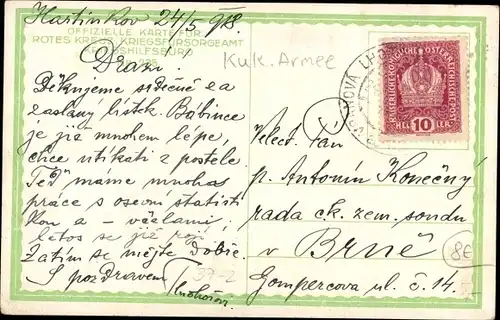 Hartinkov 24/5 918.
OFFIZIELLE KARTE FÜR
ROTES KREUZ, KRIEGSFÜRSORGEAMT
KRIEGSHILFSBÜRO
Drazí
Děkujeme srdečně za
zaslaný lístek. Babince
je již mnohem lépe,
chce utíkati z postele
Teď máme mnoho
práce s osevní statisti
kou a – včelami,
letos se již rojí
Zatím se mějte Dobře.
S pozdravem
K.u.K. Armee
KAISERLICHE KÖNIGLICHE ÖSTERREICHISCHE POST
HELLER 10
Velect. Pan
p. Antonín Konečný
rada ck. zem. soudu
v Brně
Gompercova ul. č. 14.
8E